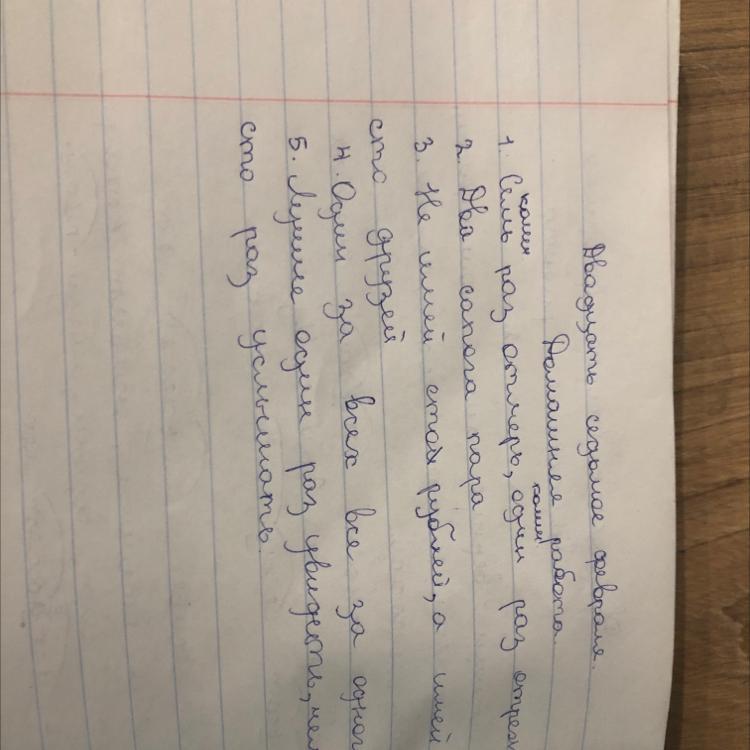 Двадцать седьмое февраля.
Домашняя работа.
колич колич
1. Семь раз отмерь, один раз отреж
2. Два сапога пара
3. Не имей стой рублей, а имей
сто друзей
4. Один за всех все за одног
5. Лучше один раз увидеть, чем
сто раз услышать.